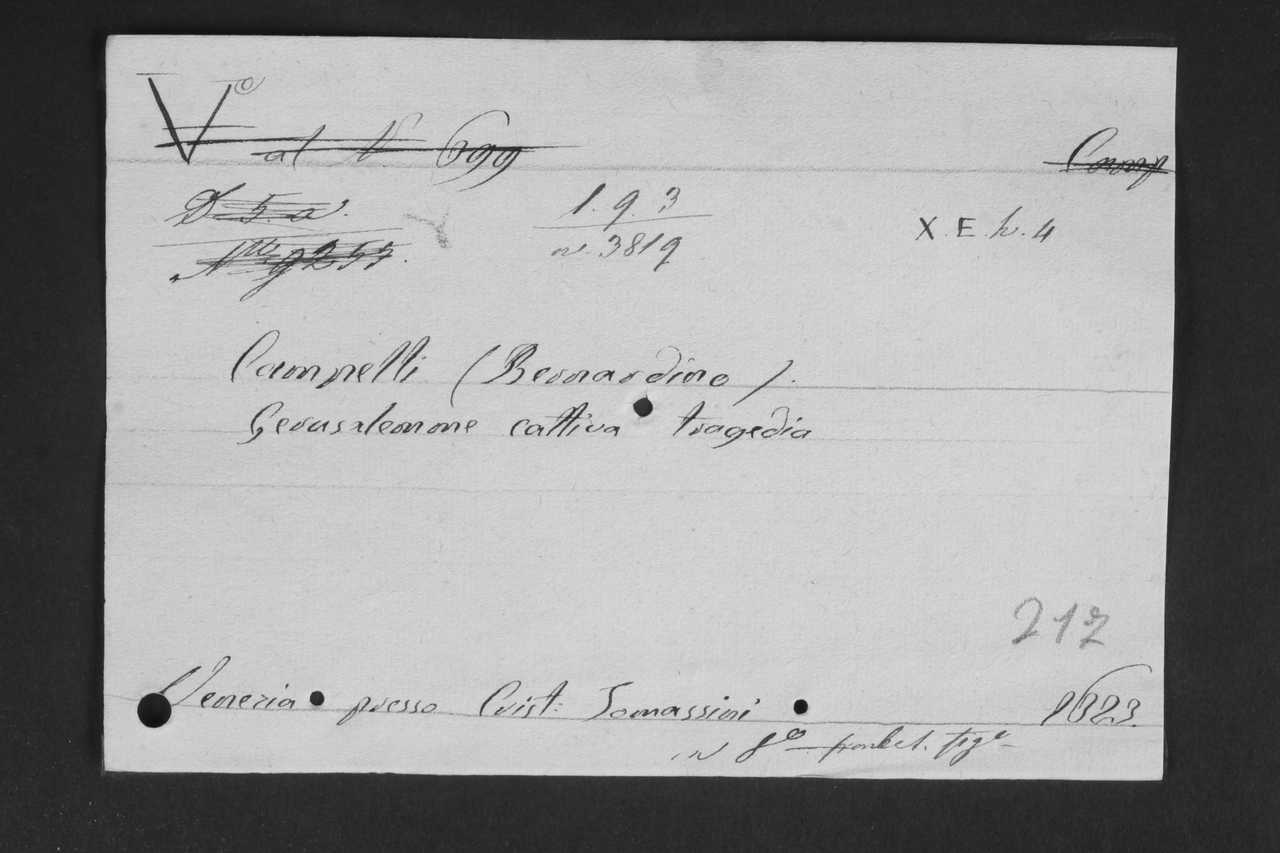 V° al N. 699
Comp
D. 5. a.
N.ro 9257.
1. 9. 3
n. 3819
X. E. h. 4
Campelli (Bernardino).
Gerusalemme cattiva tragedia
217
Venezia presso Crist: Tomassini 1623.
in 8°